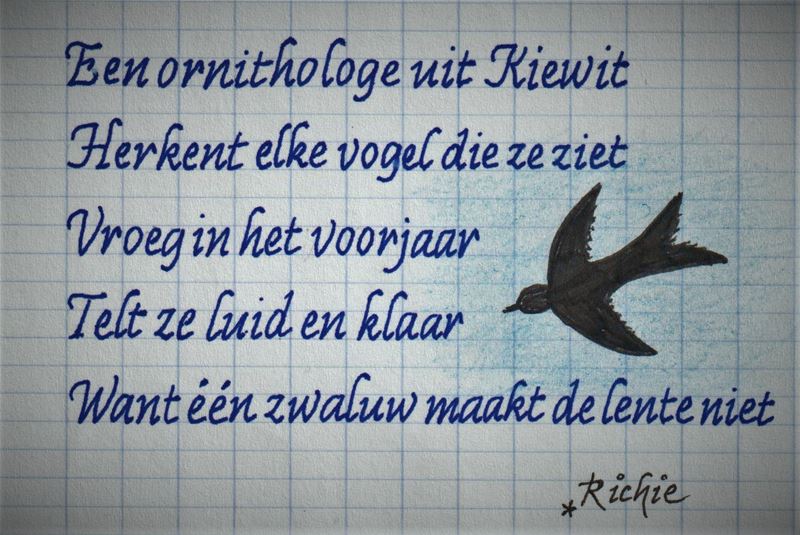 Een ornithologe uit Kiewit
Herkent elke vogel die ze ziet
Vroeg in het voorjaar
Telt ze luid en klaar
Want één zwaluw maakt de lente niet
*Richie